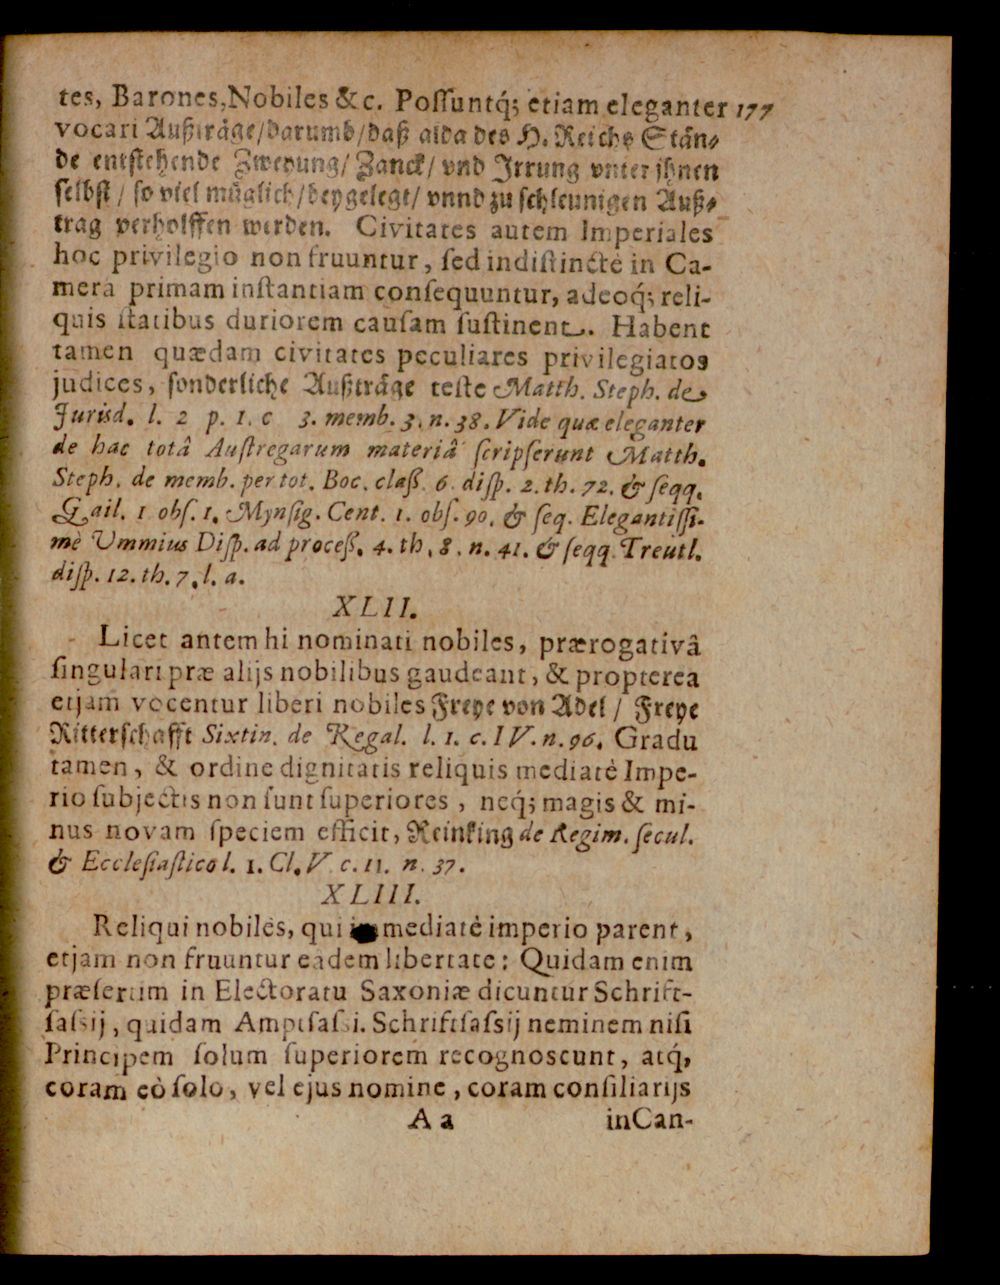 tes, Barones, Nobiles &c. Poſſuntq́; etiam eleganter 177
vocari Außträge/darumb/daß alda des H. Reichs Stän-
de entſtehende Zweyung/ Zanck/ vnd Irrung vnter ihnen
ſelbſt / ſo viel müglich/beygelegt/ vnnd zu ſchleunigen Auß-
trag verholffen werden. Civitates autem Imperiales
hoc privilegio non fruuntur, ſed indiſtinctè in Ca-
mera primam inſtantiam conſequuntur, adeoq́; reli-
quis ſtatibus duriorem cauſam ſuſtinent. Habent
tamen quædam civitates peculiares privilegiatos
judices, ſonderliche Außträge teſte Matth. Steph. de
Jurisd. l. 2 p. 1. c 3. memb. 3. n. 38. Vide quæ eleganter
de hac totâ Auſtregarum materiâ ſcripſerunt Matth.
Steph. de memb. per tot. Boc. claß. 6. diſp. 2. th. 72. & ſeqq.
Gail. 1 obſ. 1. Mynſig. Cent. 1. obſ. 90. & ſeq. Elegantiſſi-
mè Vmmius Diſp. ad proceß. 4. th. 8. n. 41. & ſeqq. Treutl.
diſp. 12. th. 7. l. a.
XLII.
Licet antem hi nominati nobiles, prærogativâ
ſingulari præ alijs nobilibus gaudeant, & propterea
etjam vocentur liberi nobiles Freye von Adel / Freye
Ritterſchafft Sixtin. de Regal. l. 1. c. IV. n. 96. Gradu
tamen, & ordine dignitatis reliquis mediatè Impe-
rio ſubjectis non ſunt ſuperiores, neq́; magis & mi-
nus novam ſpeciem efficit, Reinking de Regim. ſecul.
& Eccleſiaſtico l. 1. Cl. V c. 11. n. 37.
XLIII.
Reliqui nobiles, qui immediatè imperio parent,
etjam non fruuntur eadem libertate: Quidam enim
præſertim in Electoratu Saxoniæ dicuntur Schrift-
ſaſsij, quidam Amptſaſsi. Schriftſaſsij neminem niſi
Principem ſolum ſuperiorem recognoscunt, atq́,
coram eò ſolo, vel ejus nomine, coram conſiliarijs
A a inCan-